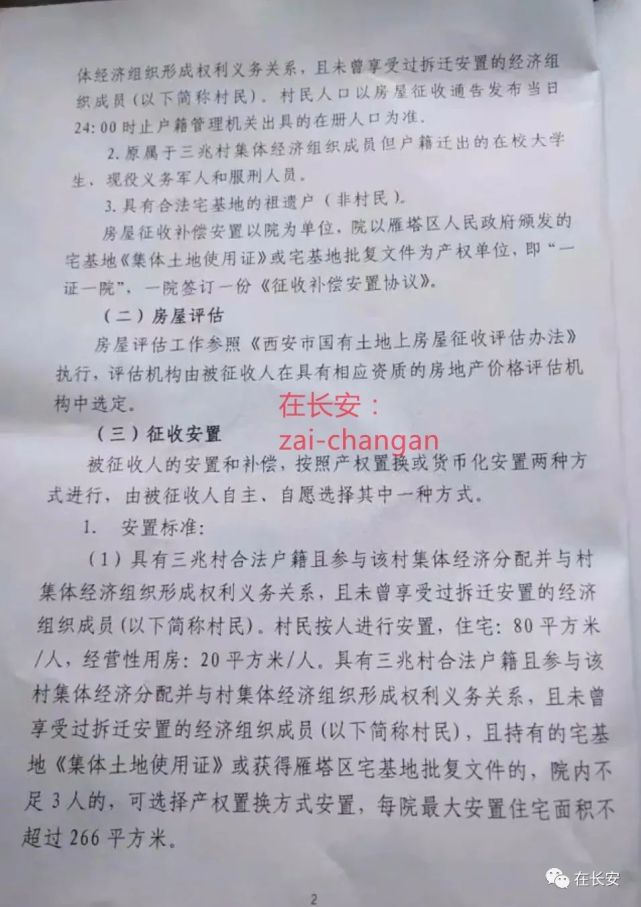 体经济组织形成权利义务关系，且未曾享受过拆迁安置的经济组
织成员(以下简称村民)。村民人口以房屋征收通告发布当日
24:00时止户籍管理机关出具的在册人口为准。
2.原属于三兆村集体经济组织成员但户籍迁出的在校大学
生，现役义务军人和服刑人员。
3.具有合法宅基地的祖遗户（非村民）。
房屋征收补偿安置以院为单位，院以雁塔区人民政府颁发的
宅基地《集体土地使用证》或宅基地批复文件为产权单位，即“一
证一院”，一院签订一份《征收补偿安置协议》。
（二）房屋评估
房屋评估工作参照《西安市国有土地上房屋征收评估办法》
执行，评估机构由被征收人在具有相应资质的房地产价格评估机
构中选定。
在长安：
zai-changan
（三）征收安置
被征收人的安置和补偿，按照产权置换或货币化安置两种方
式进行，由被征收人自主、自愿选择其中一种方式。
1. 安置标准：
（1）具有三兆村合法户籍且参与该村集体经济分配并与村
集体经济组织形成权利义务关系，且未曾享受过拆迁安置的经济
组织成员(以下简称村民)。村民按人进行安置，住宅：80平方米
/人，经营性用房：20平方米/人。具有三兆村合法户籍且参与该
村集体经济分配并与村集体经济组织形成权利义务关系，且未曾
享受过拆迁安置的经济组织成员(以下简称村民)，且持有的宅基
地《集体土地使用证》或获得雁塔区宅基地批复文件的，院内不
足3人的，可选择产权置换方式安置，每院最大安置住宅面积不
超过266平方米。
2
在长安